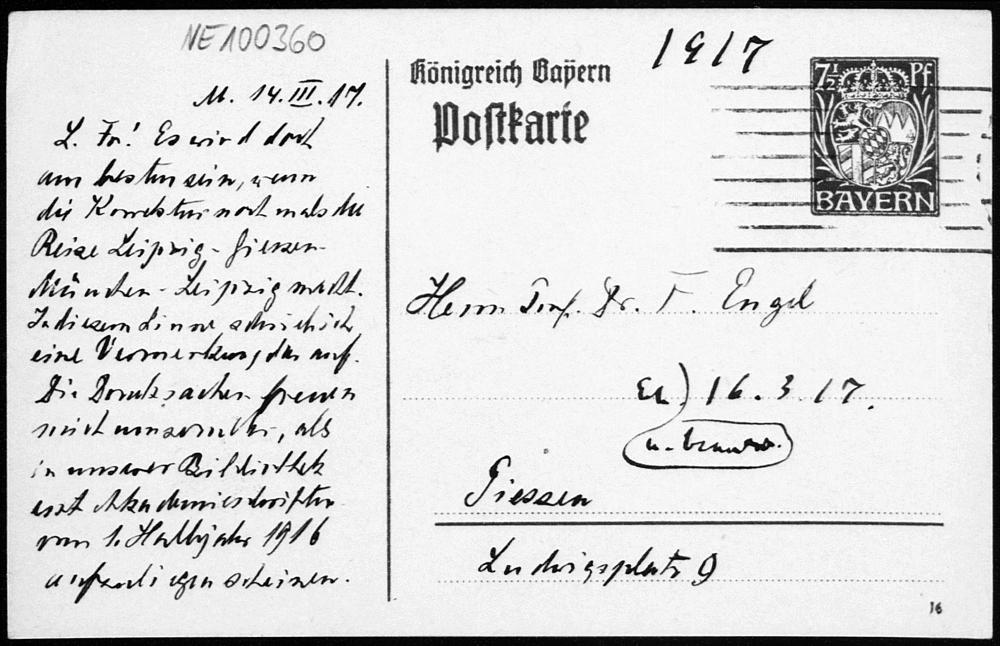 NE100360
M. 14.III.17.
L. Fr.! Es wird doch
am besten sein, wenn
die Korrektur nochmals die
Reise Leipzig - Giessen-
München - Leipzig macht.
In diesem Sinne schrieb ich
eine Vermerkung darauf.
Die Drucksachen freuen
mich umsomehr, als
in unserer Bibliothek
erst Akademieschriften
vom 1. Halbjahr 1916
aufzuliegen scheinen.
Königreich Bayern
Postkarte
1917
7½ Pf
BAYERN
Herrn Prof. Dr. F. Engel
16.3.17.
Giessen
Ludwigsplatz 9
16